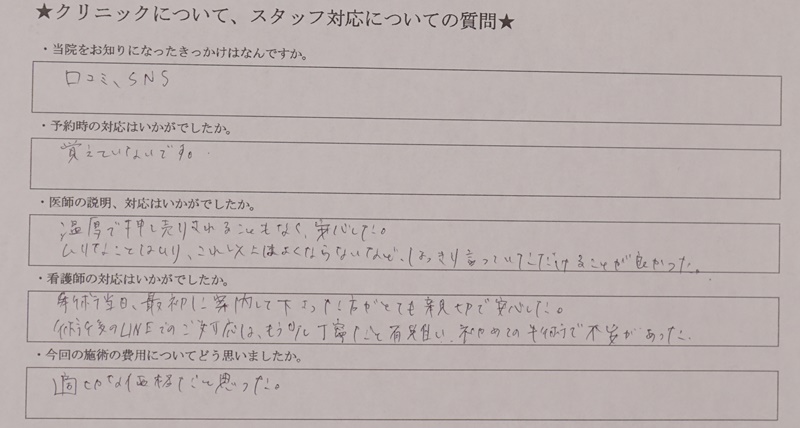 ★クリニックについて、スタッフ対応についての質問★
・当院をお知りになったきっかけはなんですか。
口コミ、SNS
・予約時の対応はいかがでしたか。
覚えていないです。
・医師の説明、対応はいかがでしたか。
温厚で押し売りされることもなく、安心した。
ムリなことはムリ、これ以上はよくならないなど、はっきり言っていただけることが良かった。
・看護師の対応はいかがでしたか。
手術当日、最初に案内して下さった方がとても親切で安心した。
術後のLINEでのご対応は、もう少し丁寧だと有難い、初めての手術で不安があった。
・今回の施術の費用についてどう思いましたか。
適切な価格だと思った。